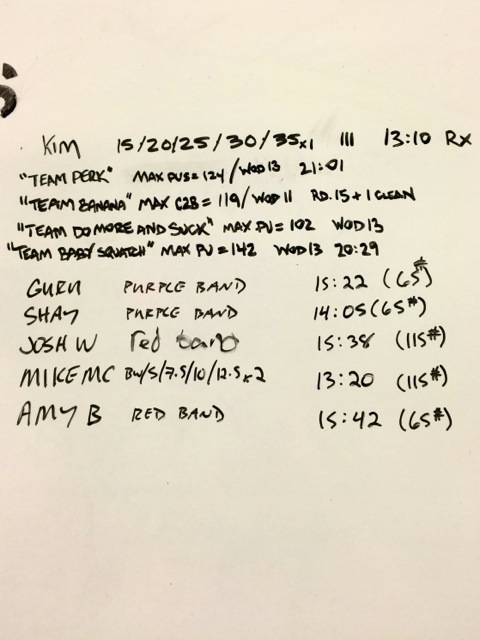 KIM 15/20/25/30/35x1 III 13:10 RX
"TEAM PERK" MAX PUS = 124/WOD 13 21:01
"TEAM BANANA" MAX C2B = 119/WOD 11 RD. 15 + 1 CLEAN
"TEAM DO MORE AND SUCK" MAX PU = 102 WOD 13
"TEAM BABY SQUATCH" MAX PU = 142 WOD 13 20:29
GURU PURPLE BAND 15:22 (65#)
SHAY PURPLE BAND 14:05 (65#)
JOSH W red band 15:38 (115#)
MIKE MC BW/5/7.5/10/12.5x2 13:20 (115#)
AMY B RED BAND 15:42 (65#)